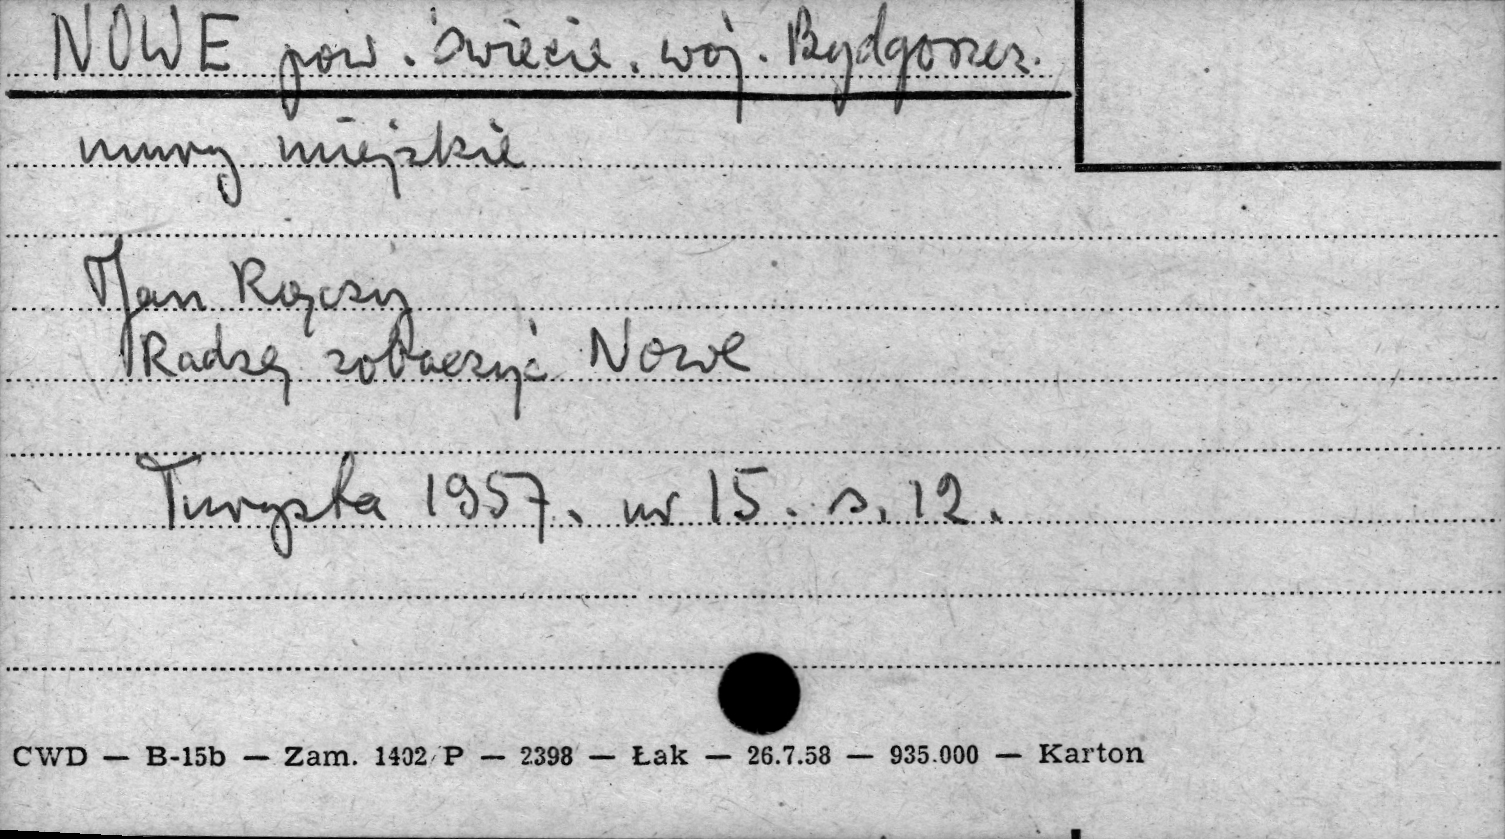 NOWE pow. Świecie. woj. Bydgoszcz.
mury miejskie
Jan
Radzę zobaczyć Nowe
Turysta 1957. nr 15. s. 12.
CWD — B-15b — Zam. 1402/P — 2398 — Łak — 26.7.58 — 935.000 — Karton